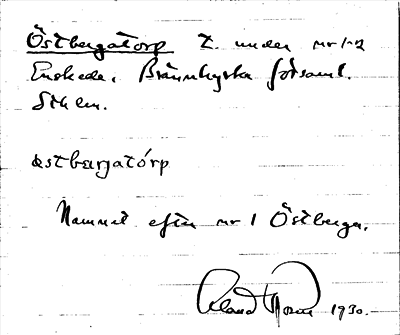 Östbergatorp t. under nr 1-2
Enskede, Brännkyrka församl.
Sthlm.
östbærjatórp
Namnet efter nr 1 Östberga.
1930.